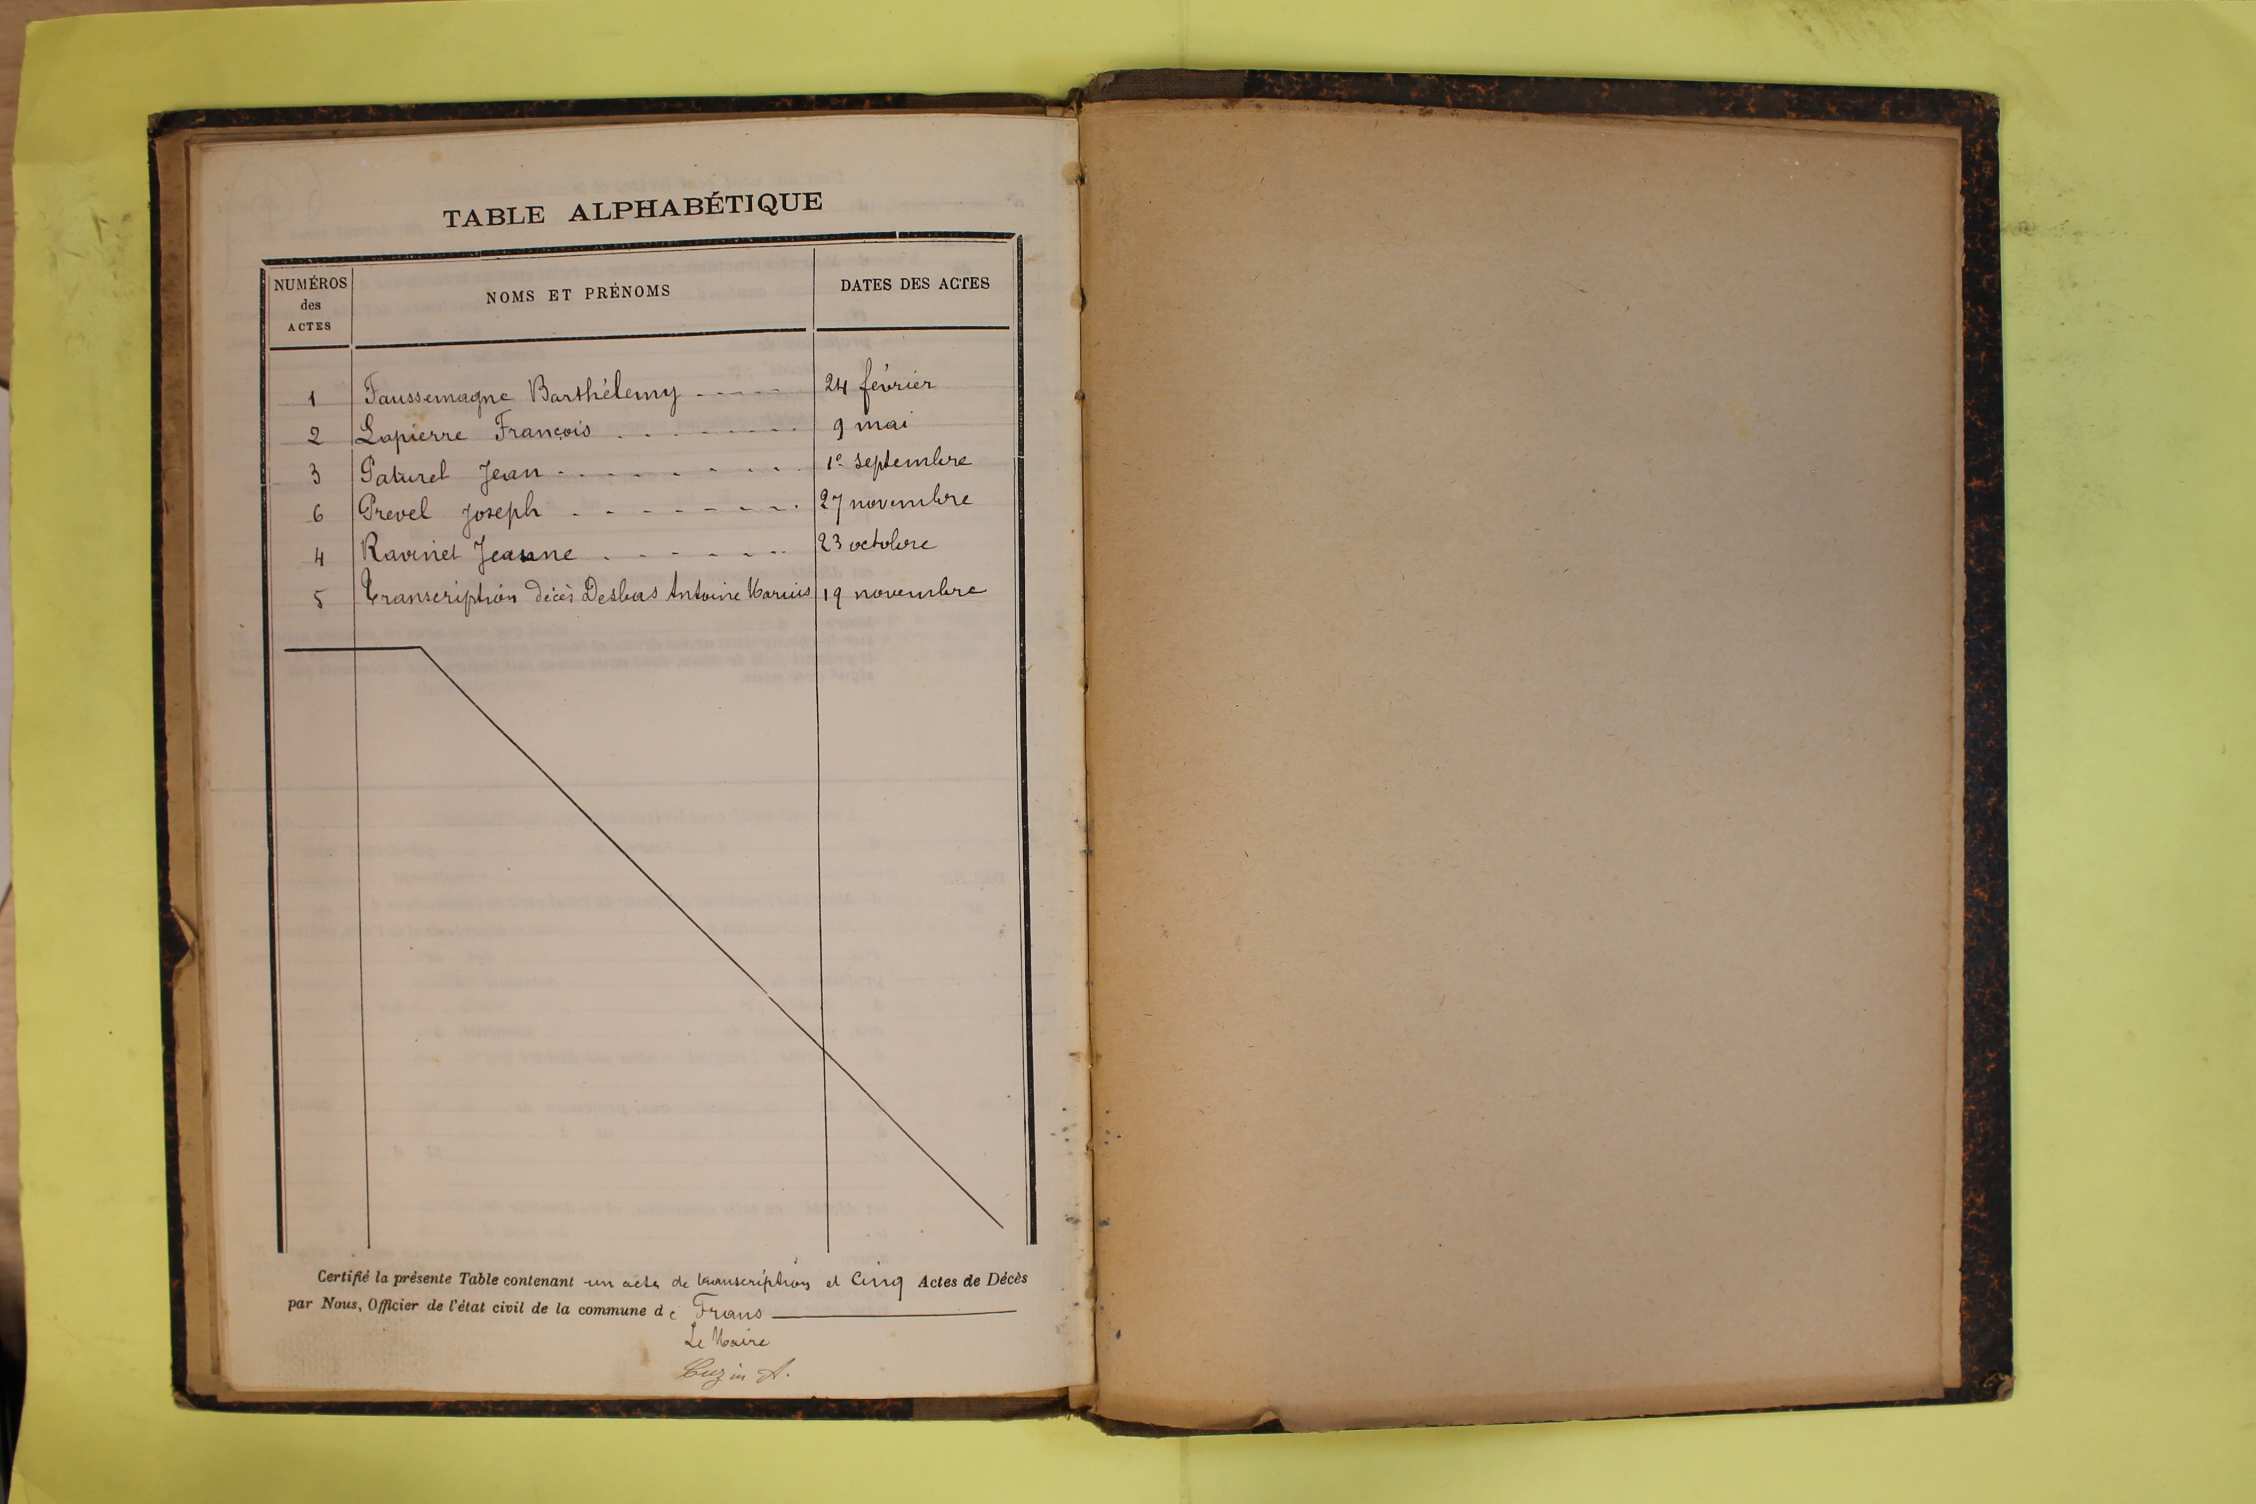 TABLE ALPHABÉTIQUE
NUMÉROS des ACTES NOMS ET PRÉNOMS DATES DES ACTES
1 Faussemagne Barthélemy 24 février
2 Lapierre François 9 mai
3 Paturel Jean 1e septembre
6 Prevel Joseph 27 novembre
4 Ravinet Jeanne 23 octobre
5 Transcription décès Desbas Antoine Marius 19 novembre
Certifié la présente Table contenant un acte de transcription et Cinq Actes de Décès
par Nous, Officier de l'état civil de la commune de Frans
Le Maire
Cuzin A.